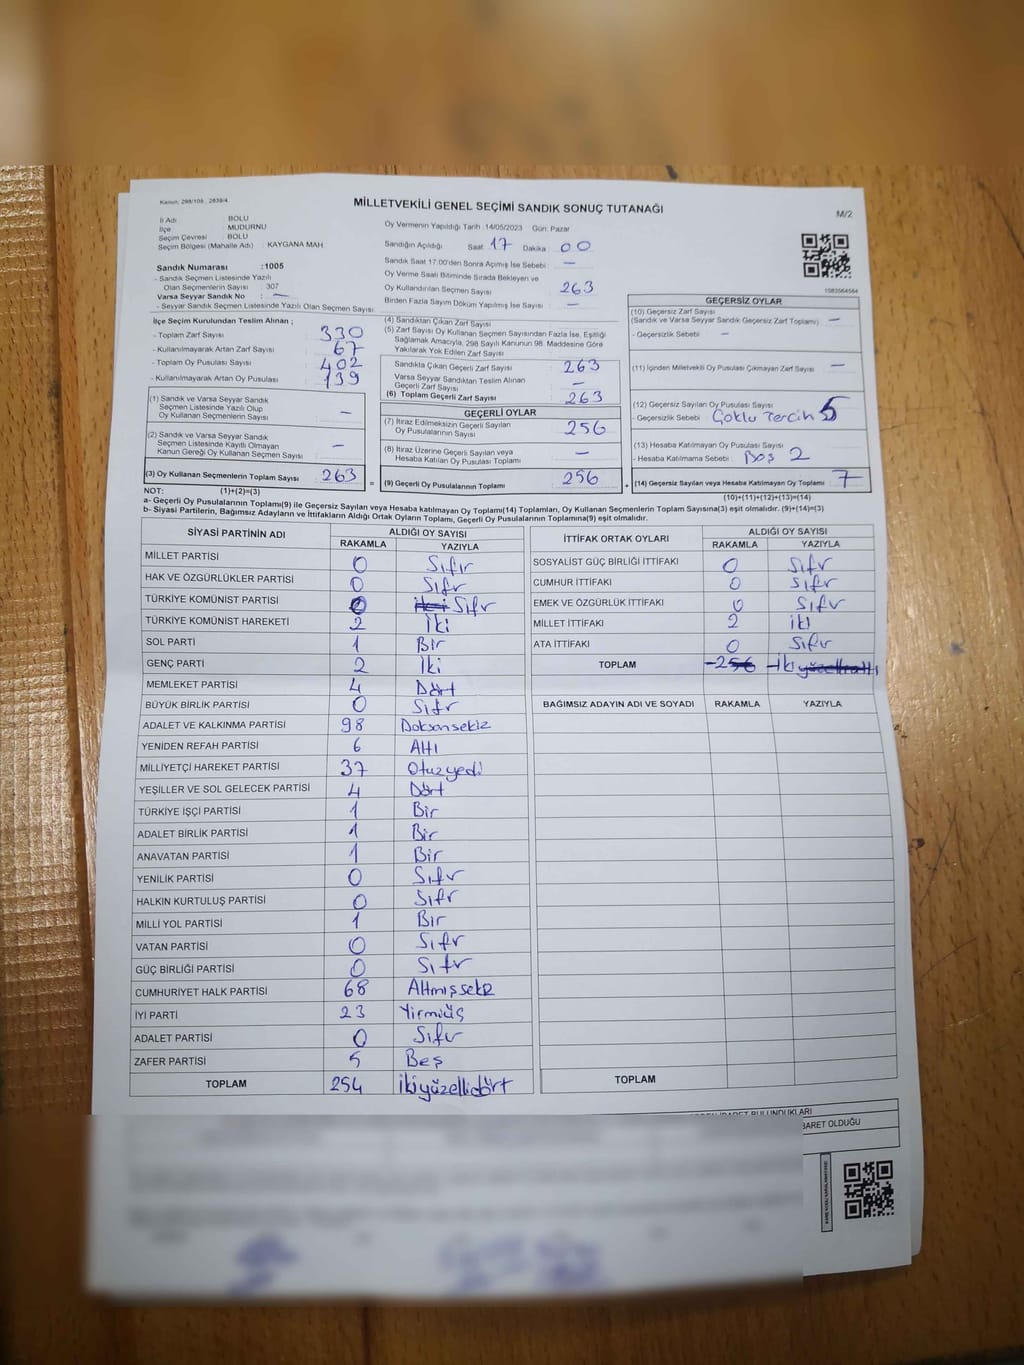 Kanun: 298/105, 2839/4
MİLLETVEKİLİ GENEL SEÇİMİ SANDIK SONUÇ TUTANAĞI
M/2
İl Adı : BOLU
İlçe : MUDURNU
Seçim Çevresi : BOLU
Seçim Bölgesi (Mahalle Adı) : KAYGANA MAH.
Sandık Numarası :1005
- Sandık Seçmen Listesinde Yazılı
Olan Seçmenlerin Sayısı : 307
Varsa Seyyar Sandık No : —
- Seyyar Sandık Seçmen Listesinde Yazılı Olan Seçmen Sayısı:
Oy Vermenin Yapıldığı Tarih :14/05/2023 Gün: Pazar
Sandığın Açıldığı Saat 17 Dakika : 00
Sandık Saat 17:00'den Sonra Açılmış İse Sebebi: —
Oy Verme Saati Bitiminde Sırada Bekleyen ve
Oy Kullandırılan Seçmen Sayısı : 263
Birden Fazla Sayım Döküm Yapılmış İse Sayısı : —
1083564564
İlçe Seçim Kurulundan Teslim Alınan ;
- Toplam Zarf Sayısı : 330
- Kullanılmayarak Artan Zarf Sayısı : 67
- Toplam Oy Pusulası Sayısı : 402
- Kullanılmayarak Artan Oy Pusulası : 139
(1) Sandık ve Varsa Seyyar Sandık
Seçmen Listesinde Yazılı Olup
Oy Kullanan Seçmenlerin Sayısı —
(2) Sandık ve Varsa Seyyar Sandık
Seçmen Listesinde Kayıtlı Olmayan
Kanun Gereği Oy Kullanan Seçmen Sayısı —
(3) Oy Kullanan Seçmenlerin Toplam Sayısı 263
(1)+(2)=(3)
(4) Sandıktan Çıkan Zarf Sayısı
(5) Zarf Sayısı Oy Kullanan Seçmen Sayısından Fazla İse, Eşitliği
Sağlamak Amacıyla, 298 Sayılı Kanunun 98. Maddesine Göre
Yakılarak Yok Edilen Zarf Sayısı
Sandıkta Çıkan Geçerli Zarf Sayısı 263
Varsa Seyyar Sandıktan Teslim Alınan
Geçerli Zarf Sayısı —
(6) Toplam Geçerli Zarf Sayısı 263
GEÇERLİ OYLAR
(7) İtiraz Edilmeksizin Geçerli Sayılan
Oy Pusulalarının Sayısı 256
(8) İtiraz Üzerine Geçerli Sayılan veya
Hesaba Katılan Oy Pusulası Toplamı —
= (9) Geçerli Oy Pusulalarının Toplamı 256 +
GEÇERSİZ OYLAR
(10) Geçersiz Zarf Sayısı
(Sandık ve Varsa Seyyar Sandık Geçersiz Zarf Toplamı) —
- Geçersizlik Sebebi : —
(11) İçinden Milletvekili Oy Pusulası Çıkmayan Zarf Sayısı —
(12) Geçersiz Sayılan Oy Pusulası Sayısı
- Geçersizlik Sebebi : Çoklu Tercih 5
(13) Hesaba Katılmayan Oy Pusulası Sayısı
- Hesaba Katılmama Sebebi : Boş 2
(14) Geçersiz Sayılan veya Hesaba Katılmayan Oy Toplamı 7
(10)+(11)+(12)+(13)=(14)
NOT:
a- Geçerli Oy Pusulaların Toplamı(9) ile Geçersiz Sayılan veya Hesaba katılmayan Oy Toplamı(14) Toplamları, Oy Kullanan Seçmenlerin Toplam Sayısına(3) eşit olmalıdır. (9)+(14)=(3)
b- Siyasi Partilerin, Bağımsız Adayların ve İttifakların Aldığı Ortak Oyların Toplamı, Geçerli Oy Pusulalarının Toplamına(9) eşit olmalıdır.
SİYASİ PARTİNİN ADI ALDIĞI OY SAYISI
RAKAMLA YAZIYLA
MİLLET PARTİSİ 0 Sıfır
HAK VE ÖZGÜRLÜKLER PARTİSİ 0 Sıfır
TÜRKİYE KOMÜNİST PARTİSİ 0 İki Sıfır
TÜRKİYE KOMÜNİST HAREKETİ 2 İki
SOL PARTİ 1 Bir
GENÇ PARTİ 2 İki
MEMLEKET PARTİSİ 4 Dört
BÜYÜK BİRLİK PARTİSİ 0 Sıfır
ADALET VE KALKINMA PARTİSİ 98 Doksansekiz
YENİDEN REFAH PARTİSİ 6 Altı
MİLLİYETÇİ HAREKET PARTİSİ 37 Otuzyedi
YEŞİLLER VE SOL GELECEK PARTİSİ 4 Dört
TÜRKİYE İŞÇİ PARTİSİ 1 Bir
ADALET BİRLİK PARTİSİ 1 Bir
ANAVATAN PARTİSİ 1 Bir
YENİLİK PARTİSİ 0 Sıfır
HALKIN KURTULUŞ PARTİSİ 0 Sıfır
MİLLİ YOL PARTİSİ 1 Bir
VATAN PARTİSİ 0 Sıfır
GÜÇ BİRLİĞİ PARTİSİ 0 Sıfır
CUMHURİYET HALK PARTİSİ 68 Altmışsekiz
İYİ PARTİ 23 Yirmiüç
ADALET PARTİSİ 0 Sıfır
ZAFER PARTİSİ 5 Beş
TOPLAM 254 İkiyüzellidört
İTTİFAK ORTAK OYLARI ALDIĞI OY SAYISI
RAKAMLA YAZIYLA
SOSYALİST GÜÇ BİRLİĞİ İTTİFAKI 0 Sıfır
CUMHUR İTTİFAKI 0 Sıfır
EMEK VE ÖZGÜRLÜK İTTİFAKI 0 Sıfır
MİLLET İTTİFAKI 2 İki
ATA İTTİFAKI 0 Sıfır
TOPLAM 256 İkiyüzellialtı
BAĞIMSIZ ADAYIN ADI VE SOYADI RAKAMLA YAZIYLA
TOPLAM
BARET OLDUĞU